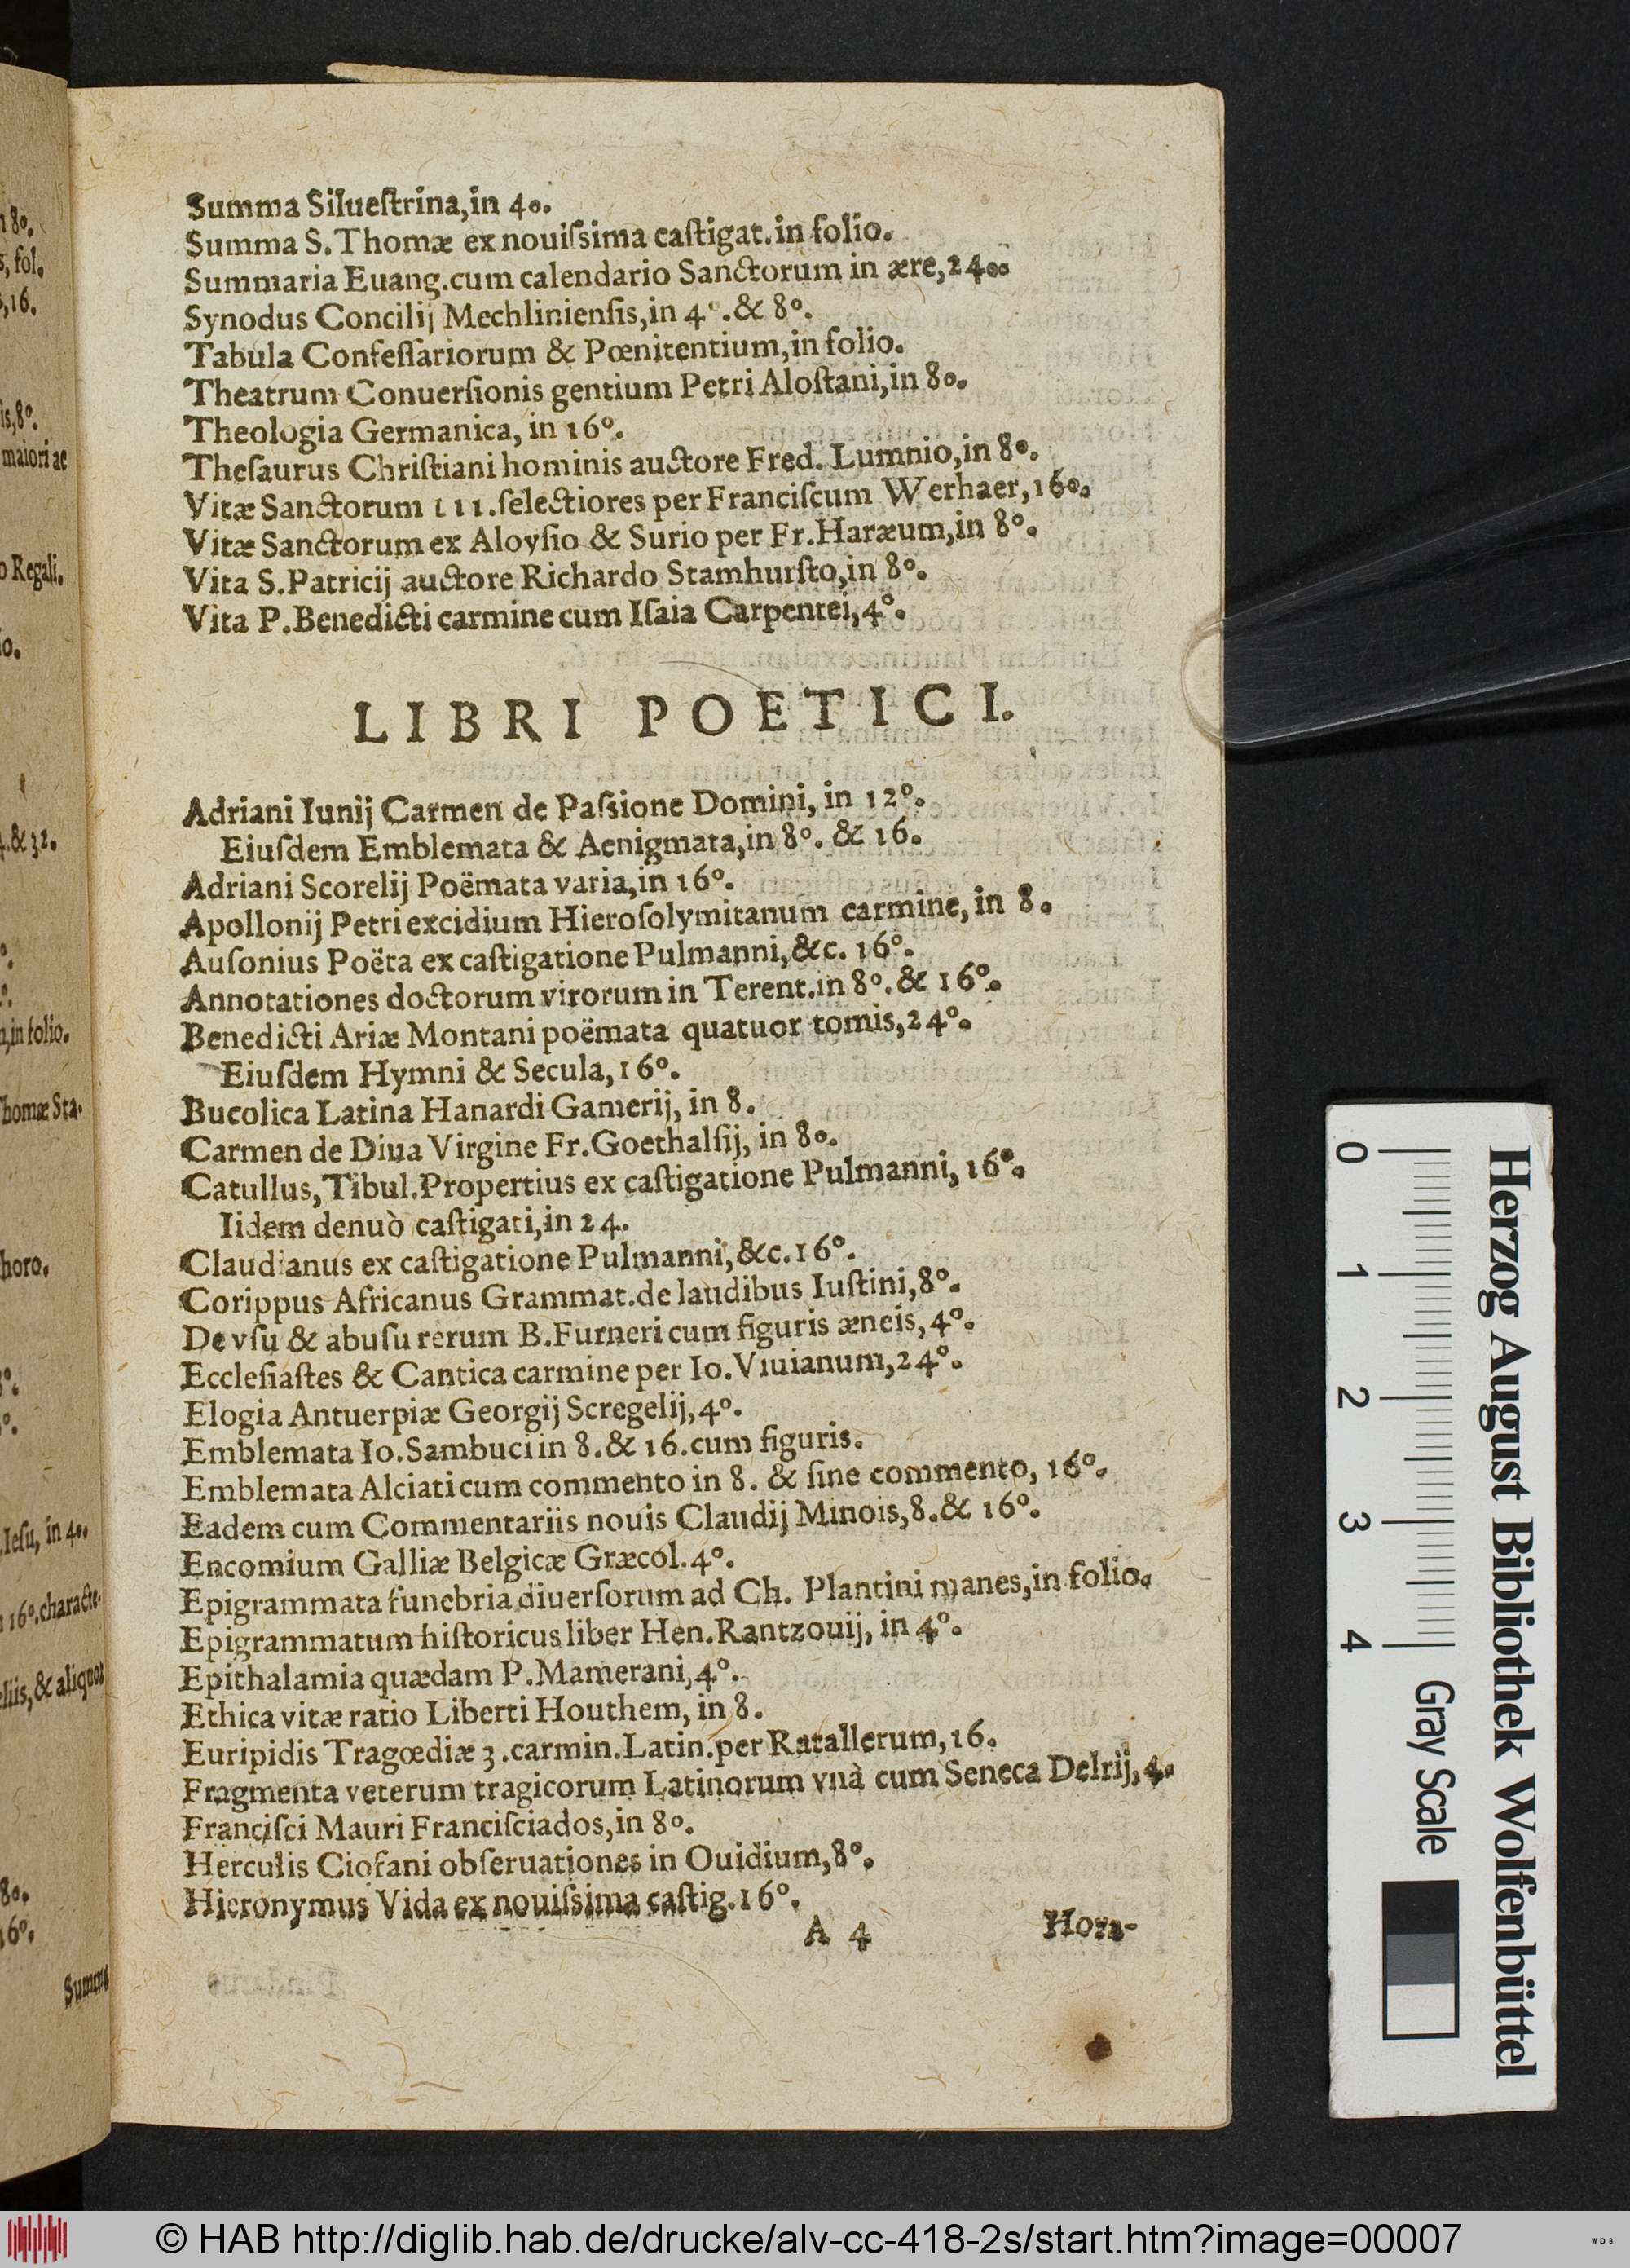 Summa Silueſtrina,in 4o.
Summa S.Thomæ ex nouiſsima caſtigat.in folio.
Summaria Euang.cum calendario Sanctorum in ære,24o.
Synodus Concilij Mechlinienſis,in 4°.& 8°.
Tabula Confeſſariorum & Pœnitentium,in folio.
Theatrum Conuerſionis gentium Petri Aloſtani,in 8o.
Theologia Germanica, in 16°.
Theſaurus Chriſtiani hominis auctore Fred. Lumnio,in 8°.
Vitæ Sanctorum III.ſelectiores per Franciſcum Werhaer,16o.
Vitæ Sanctorum ex Aloyſio & Surio per Fr.Haræum,in 8°.
Vita S.Patricij auctore Richardo Stamhurſto,in 8°.
Vita P.Benedicti carmine cum Iſaia Carpentei,4°.
LIBRI POETICI.
Adriani Iunij Carmen de Paſsione Domini, in 12°.
Eiuſdem Emblemata & Aenigmata,in 8°. & 16.
Adriani Scorelij Poëmata varia,in 16°.
Apollonij Petri excidium Hieroſolymitanum carmine, in 8.
Auſonius Poëta ex caſtigatione Pulmanni,&c. 16°.
Annotationes doctorum virorum in Terent.in 8°.& 16°.
Benedicti Ariæ Montani poëmata quatuor tomis,24°.
Eiuſdem Hymni & Secula,16°.
Bucolica Latina Hanardi Gamerij, in 8.
Carmen de Diua Virgine Fr.Goethalſij, in 8o.
Catullus,Tibul.Propertius ex caſtigatione Pulmanni, 16°.
Iidem denuò caſtigati,in 24.
Claudianus ex caſtigatione Pulmanni,&c.16°.
Corippus Africanus Grammat.de laudibus Iuſtini,8°.
De vſu & abuſu rerum B.Furneri cum figuris æneis,4°.
Eccleſiaſtes & Cantica carmine per Io.Viuianum,24°.
Elogia Antuerpiæ Georgij Scregelij,4°.
Emblemata Io.Sambuci in 8.& 16.cum figuris.
Emblemata Alciati cum commento in 8. & ſine commento, 16°.
Eadem cum Commentariis nouis Claudij Minois,8.& 16°.
Encomium Galliæ Belgicæ Græcol.4°.
Epigrammata funebria diuerſorum ad Ch. Plantini manes,in folio.
Epigrammatum hiſtoricus liber Hen.Rantzouij, in 4°.
Epithalamia quædam P.Mamerani,4°.
Ethica vitæ ratio Liberti Houthem, in 8.
Euripidis Tragœdiæ 3.carmin.Latin.per Ratallerum,16.
Fragmenta veterum tragicorum Latinorum vnà cum Seneca Delrij,4.
Franciſci Mauri Franciſciados,in 8o.
Herculis Ciofani obſeruationes in Ouidium,8°.
Hieronymus Vida ex nouiſsima caſtig.16°.
A 4 Hora-
8o.
fol.
16.
maiori ac
Regali.
& 32.
in folio.
Thomæ Sta-
Ieſu, in 4o.
16°.characte-
& aliquot
Summa
Herzog August Bibliothek Wolfenbüttel
0 1 2 3 4 Gray Scale
© HAB http://diglib.hab.de/drucke/alv-cc-418-2s/start.htm?image=00007